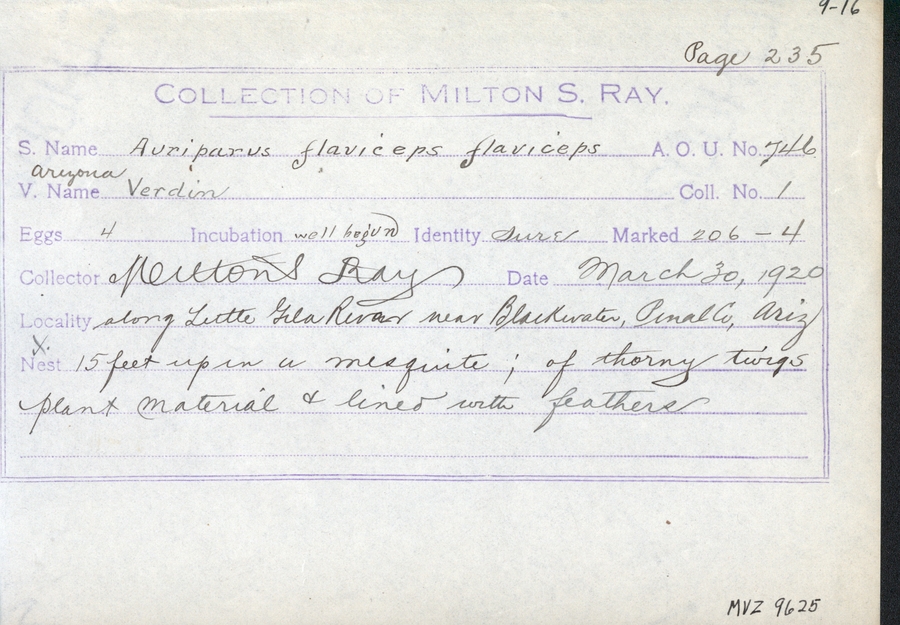 9-16
Page 235
COLLECTION OF MILTON S. RAY.
S. Name Auriparus flaviceps flaviceps A. O. U. No. 746
Arizona
V. Name Verdin Coll. No. 1
Eggs 4 Incubation well begun Identity sure Marked 206-4
Collector Milton S Ray Date March 30, 1920
Locality along Little Gila River near Blackwater, Pinal Co, Ariz
X.
Nest 15 feet up in a mesquite; of thorny twigs
plant material & lined with feathers
MVZ 9625